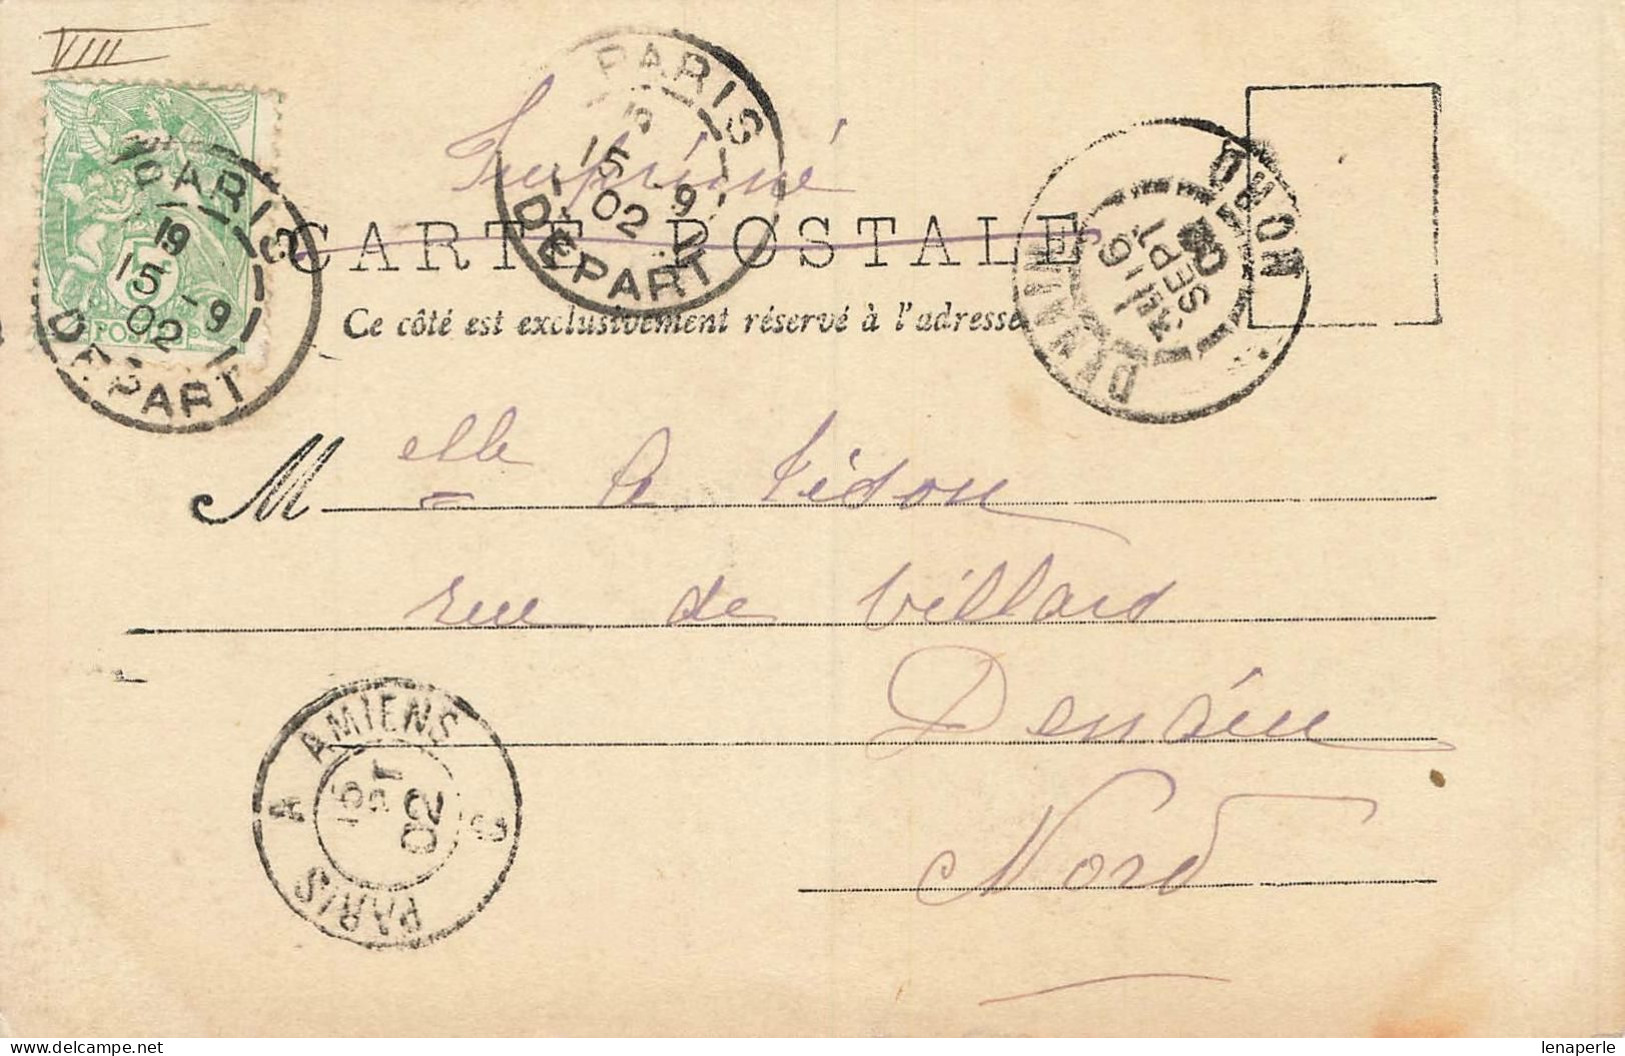 VIII
PARIS
19
15 -9
02
DEPART
5
POSTES
PARIS
15 -9
02
DEPART
Imprimé
CARTE POSTALE
Ce côté est exclusivement réservé à l'adresse
DENAIN
NORD
16
SEPT
02
M elle
rue de Villars
Denain
Nord
AMIENS A PARIS
15
02
lenaperle